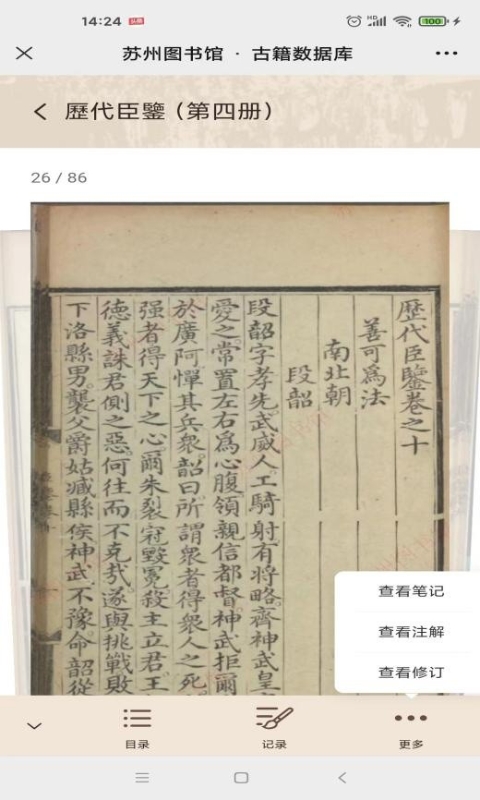 14:24
苏州图书馆 · 古籍数据库
歷代臣鑒（第四册）
26 / 86
歷代臣鑒卷之十
善可爲法
南北朝
段韶
段韶字孝先武威人工騎射有將略齊神武皇
愛之常置左右爲心腹領親信都督神武拒爾
於廣阿憚其兵衆韶曰所謂衆者得衆人之死
强者得天下之心爾朱裂冠毀冕殺主立君王
德義誅君側之惡何往而不克㢤遂與挑戰敗
下洛縣男襲父爵姑臧縣侯神武不豫命韶從
查看笔记
查看注解
查看修订
目录
记录
更多